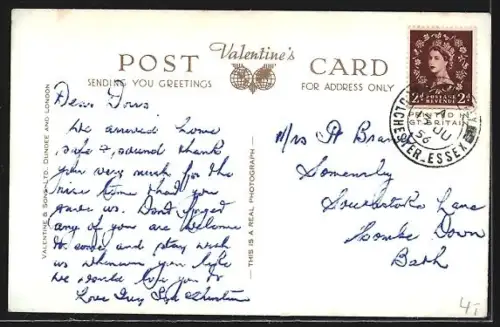 POST Valentine's CARD
SENDING YOU GREETINGS FOR ADDRESS ONLY
Dear
We arrived home
safe & sound thank
you very much for the
nice time that you
gave us. Dont forget
any of you are welcome
to come and stay with
us whenever you like
we would love you to
Love
VALENTINE & SONS, LTD. DUNDEE AND LONDON
THIS IS A REAL PHOTOGRAPH
2d POSTAGE REVENUE 2d
PRINTED IN
GT. BRITAIN
JU
56
COLCHESTER, ESSEX
Mrs A
Lane
Combe Down
Bath
4,-